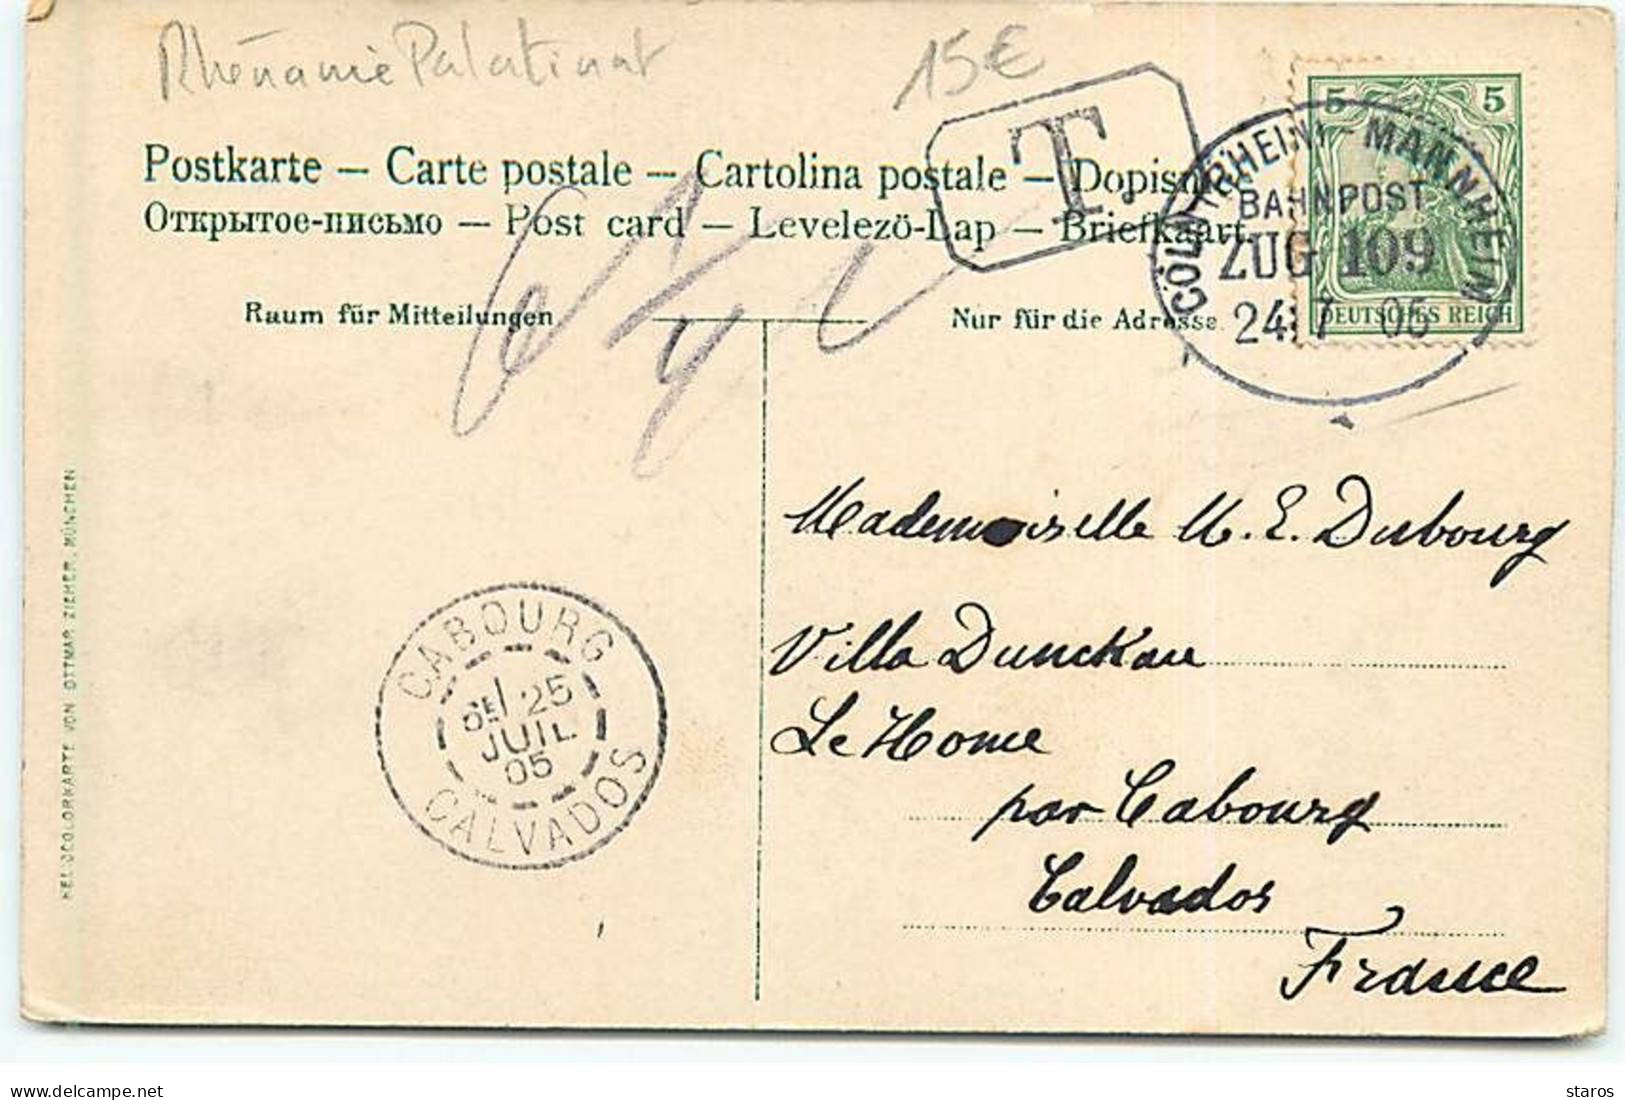 Rhénanie Palatinat
15€
T
5 5
DEUTSCHES REICH
CÖLN (RHEIN) - MANNHEIM
BAHNPOST
ZUG 109
24 7 05
Postkarte — Carte postale — Cartolina postale — Dopisnice
Открытое-письмо — Post card — Levelezö-Lap — Briefkaart
Raum für Mitteilungen
Nur für die Adresse
Mademoiselle M. E. Dubourg
Villa Dunckan
Le Home
par Cabourg
Calvados
France
CABOURG
6E 25
JUIL
05
CALVADOS
HELIOCOLORKARTE VON OTTMAR ZIEHER, MÜNCHEN
staros